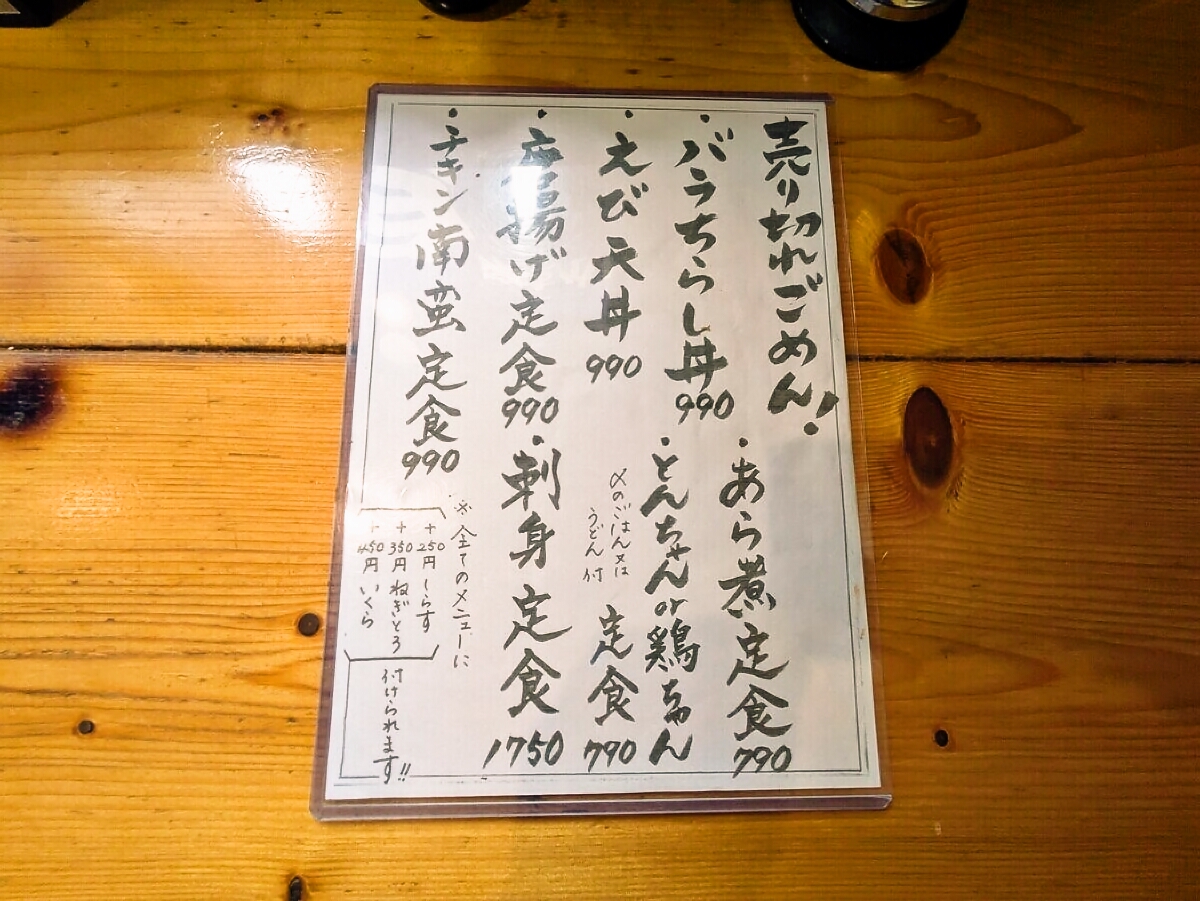 売り切れごめん!
・バラちらし丼
990
・えび天丼
990
揚げ定食
990
・チキン南蛮定食
990
・あら煮定食
790
・とんちゃんor鶏ちゃん
定食
790
〆のごはん又は
うどん付
・刺身定食
1750
※全てのメニューに
+250円しらす
+350円ねぎとろ
+450円いくら
付けられます!!